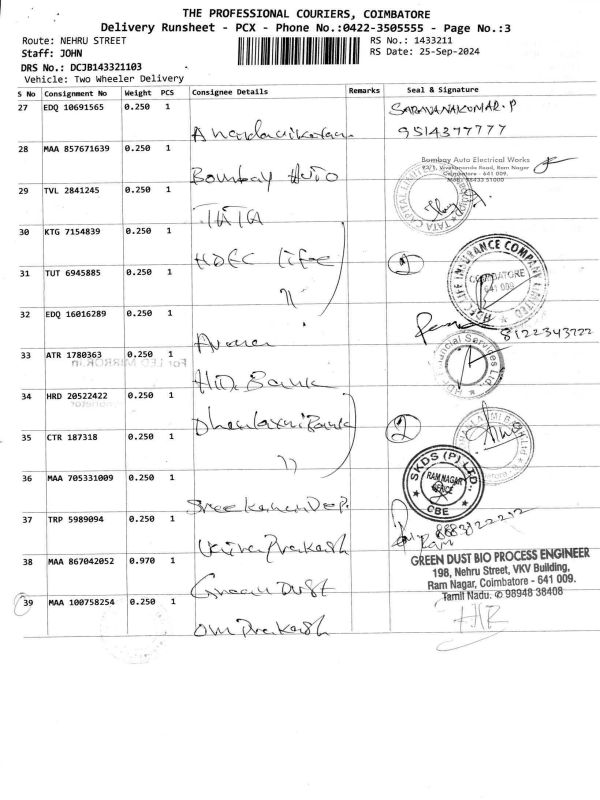 THE PROFESSIONAL COURIERS, COIMBATORE
Delivery Runsheet - PCX - Phone No.:0422-3505555 - Page No.:3
Route: NEHRU STREET
RS No.: 1433211
Staff: JOHN
RS Date: 25-Sep-2024
DRS No.: DCJB143321103
Vehicle: Two Wheeler Delivery
S No Consignment No Weight PCS Consignee Details Remarks Seal & Signature
27 EDQ 10691565 0.250 1
SARAVANAKUMAR.P
9514377777
28 MAA 857671639 0.250 1
Bombay Auto
Bombay Auto Electrical Works
Vivekananda Road, Ram Nagar
Coimbatore - 641 009.
29 TVL 2841245 0.250 1
TATA
TATA CAPITAL LIMITED
30 KTG 7154839 0.250 1
HDFC life
2
HDFC LIFE INSURANCE COMPANY LIMITED
COIMBATORE
641 009
31 TUT 6945885 0.250 1
"
32 EDQ 16016289 0.250 1
8122343722
33 ATR 1780363 0.250 1
HDB Bank
Financial Services Ltd.
34 HRD 20522422 0.250 1
Dhanlaxmi Bank
2
35 CTR 187318 0.250 1
"
36 MAA 705331009 0.250 1
SKDS (P) LTD
RAM NAGAR
CBE
37 TRP 5989094 0.250 1
38 MAA 867042052 0.970 1
Green Dust
GREEN DUST BIO PROCESS ENGINEER
198, Nehru Street, VKV Building,
Ram Nagar, Coimbatore - 641 009.
Tamil Nadu. ✆ 98948 38408
39 MAA 100758254 0.250 1
Om Prakash